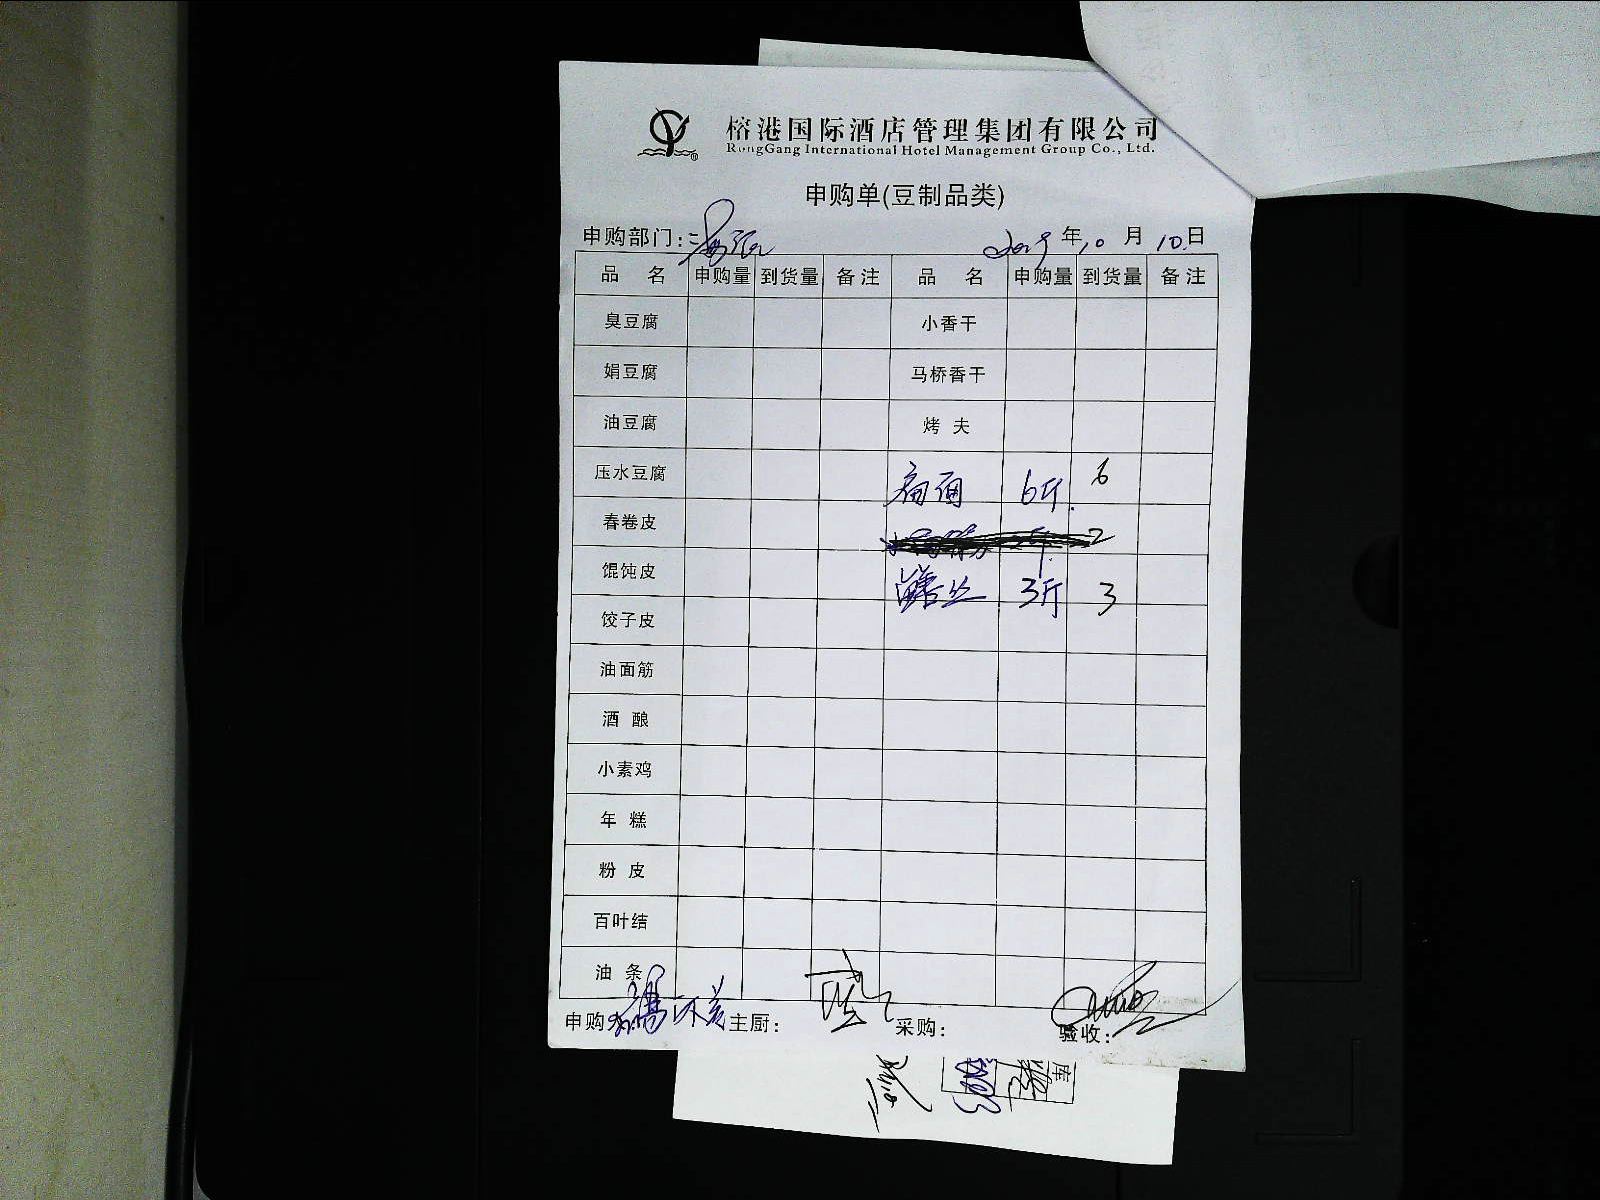 榕港国际酒店管理集团有限公司
RongGang International Hotel Management Group Co., Ltd.
申购单(豆制品类)
申购部门: 2019年10月10日
品名 申购量 到货量 备注 品名 申购量 到货量 备注
臭豆腐 小香干
娟豆腐 马桥香干
油豆腐 烤夫
压水豆腐 6斤 6
春卷皮 2
馄饨皮 丝 3斤 3
饺子皮
油面筋
酒酿
小素鸡
年糕
粉皮
百叶结
油条
申购 主厨: 采购: 验收:
库